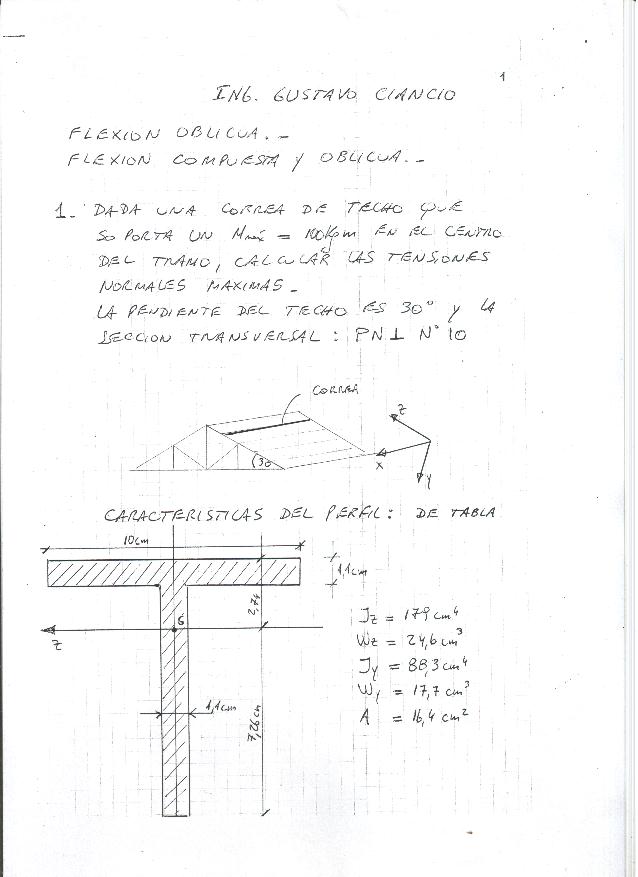 1
ING. GUSTAVO CIANCIO
FLEXION OBLICUA.-
FLEXION COMPUESTA Y OBLICUA.-
1- DADA UNA CORREA DE TECHO QUE
SOPORTA UN Mmáx = 100Kgm EN EL CENTRO
DEL TRAMO, CALCULAR LAS TENSIONES
NORMALES MAXIMAS-
LA PENDIENTE DEL TECHO ES 30° Y LA
SECCION TRANSVERSAL: PN⊥ N° 10
CORREA
30
Z
X
Y
CARACTERISTICAS DEL PERFIL: DE TABLA
10cm
1,1cm
2,74
G
Z
1,1cm
7,26cm
Jz = 179 cm⁴
Wz = 24,6 cm³
Jy = 88,3 cm⁴
Wy = 17,7 cm³
A = 16,4 cm²